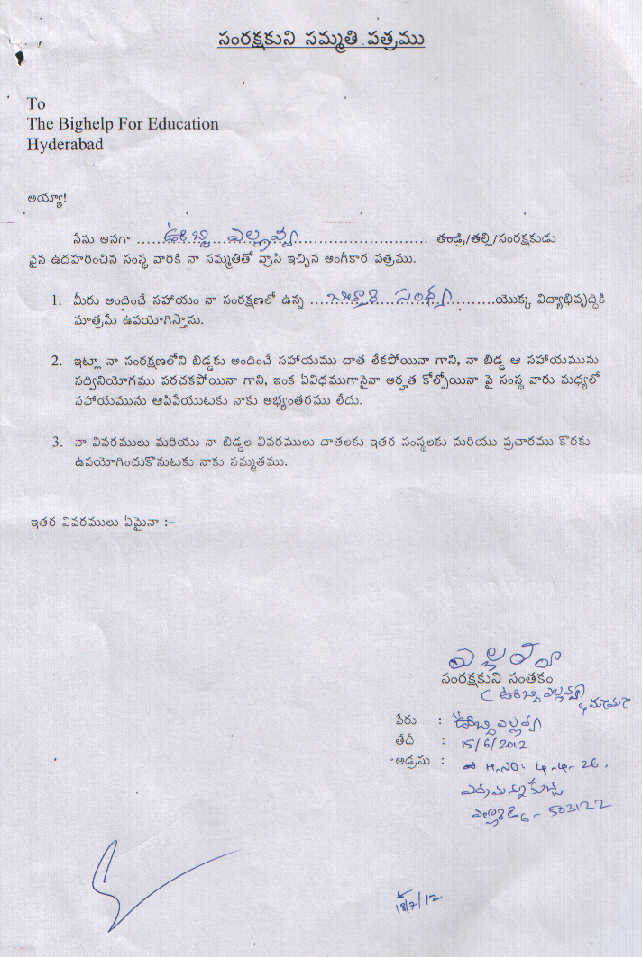 సంరక్షకుని సమ్మతి పత్రము
To
The Bighelp For Education
Hyderabad
అయ్యా!
నేను అనగా ..... ఎల్లవ్వ ..... తండ్రి/తల్లి/సంరక్షకుడు
పైన ఉదహరించిన సంస్థ వారికి నా సమ్మతితో వ్రాసి ఇచ్చిన అంగీకార పత్రము.
1. మీరు అందించే సహాయం నా సంరక్షణలో ఉన్న ..... సంధ్య .....యొక్క విద్యాభివృద్ధికి
మాత్రమే ఉపయోగిస్తాను.
2. ఇట్లా నా సంరక్షణలోని బిడ్డకు అందించే సహాయము దాత లేకపోయినా గాని, నా బిడ్డ ఆ సహాయమును
సద్వినియోగము పరచకపోయినా గాని, ఇంక ఏవిధముగానైవా అర్హత కోల్పోయినా వై సంస్థ వారు మధ్యలో
సహాయమును ఆపివేయుటకు నాకు అభ్యంతరము లేదు.
3. నా వివరములు మరియు నా బిడ్డల వివరములు దాతలకు ఇతర సంస్థలకు మరియు ప్రచారము కొరకు
ఉపయోగించుకొనుటకు నాకు సమ్మతము.
ఇతర వివరములు ఏమైనా :-
ఎల్లవ్వ
సంరక్షకుని సంతకం
పేరు : ఎల్లవ్వ
తేదీ : 15/6/2012
అడ్రసు : H.NO: 4-4-26.
503122
18/7/12